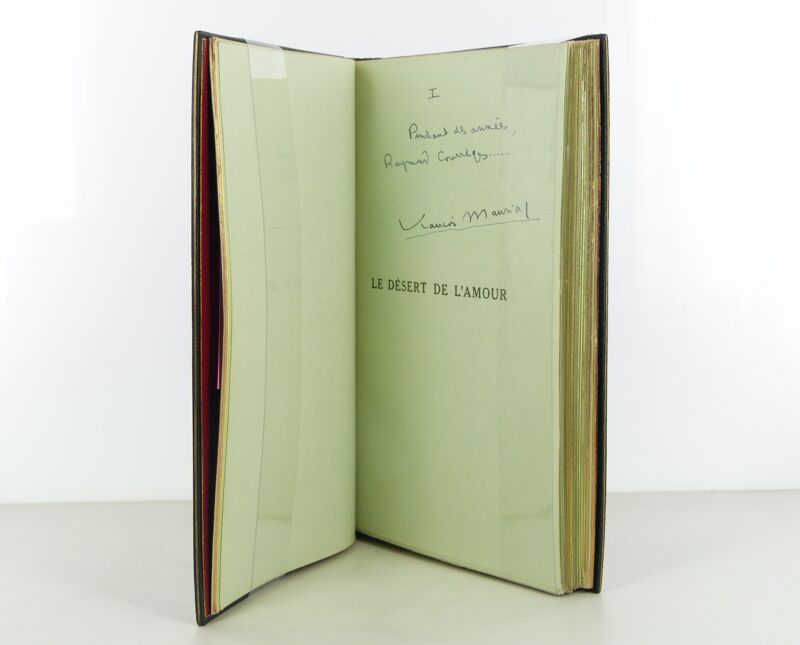 I
Pendant des années,
Raymond Courrèges.....
François Mauriac
LE DÉSERT DE L'AMOUR